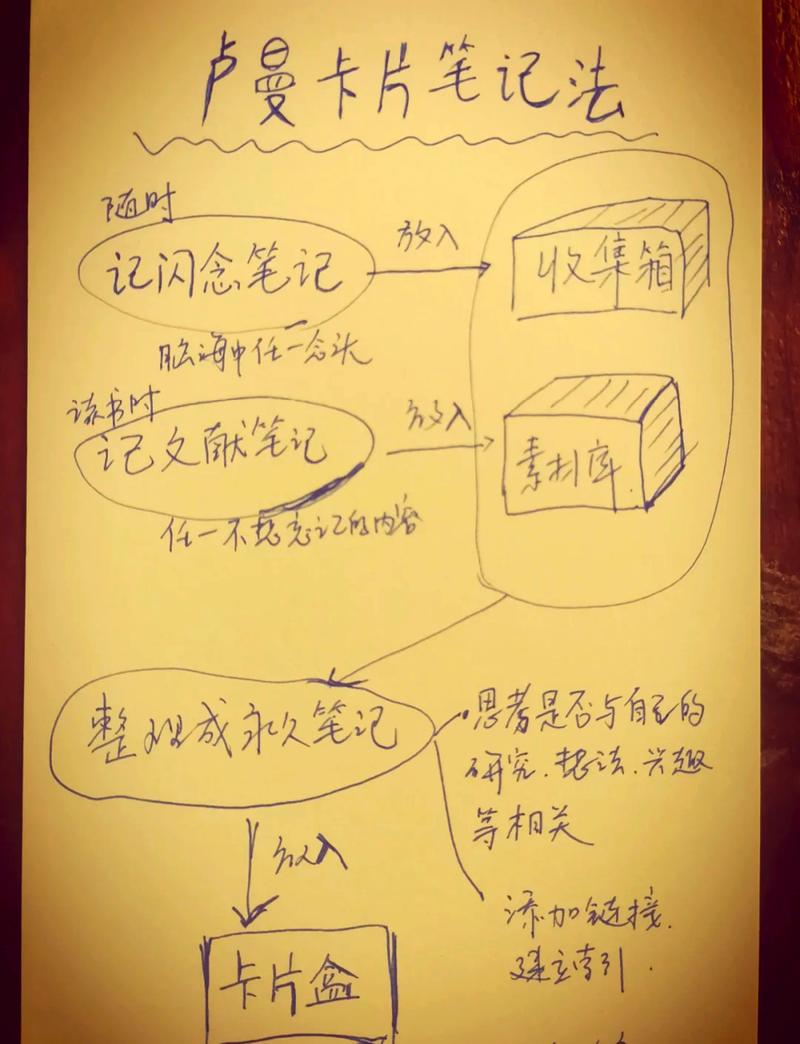 卢曼卡片笔记法
随时
记闪念笔记
放入
收集箱
脑海中任一念头
读书时
记文献笔记
放入
素材库.
任一不想忘记的内容
整理成永久笔记
·思考是否与自己的
研究、想法、兴趣
等相关
放入
添加链接、
建立索引.
卡片盒